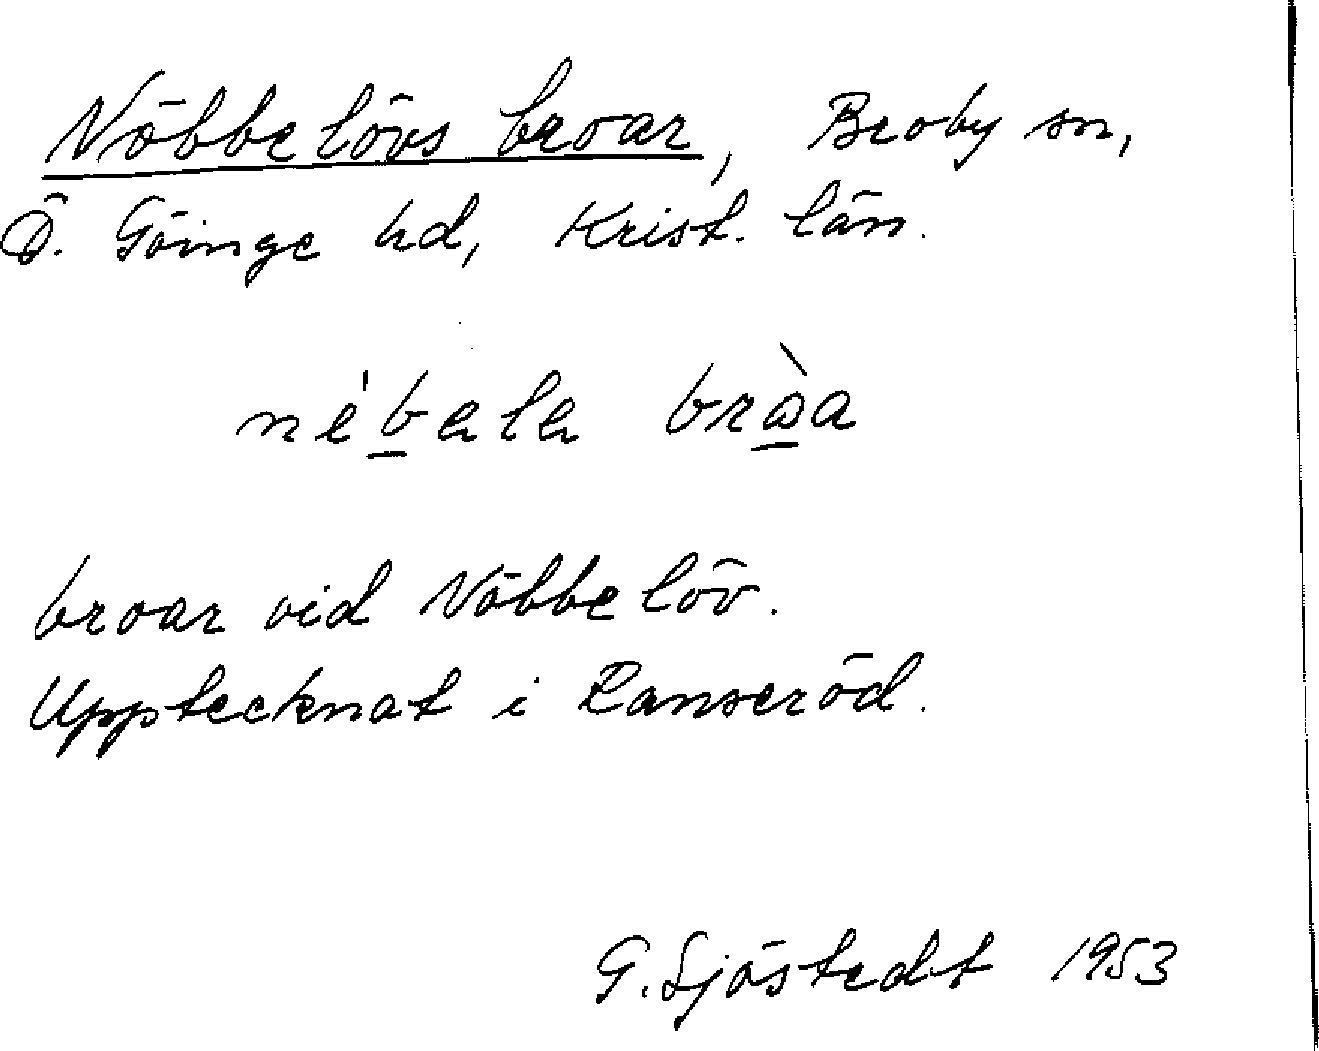 Nöbbelövs broar, Broby sn,
Ö. Göinge hd, Krist. län.
broar vid Nöbbelöv.
Upptecknat i Ranseröd.
G. Sjöstedt 1953